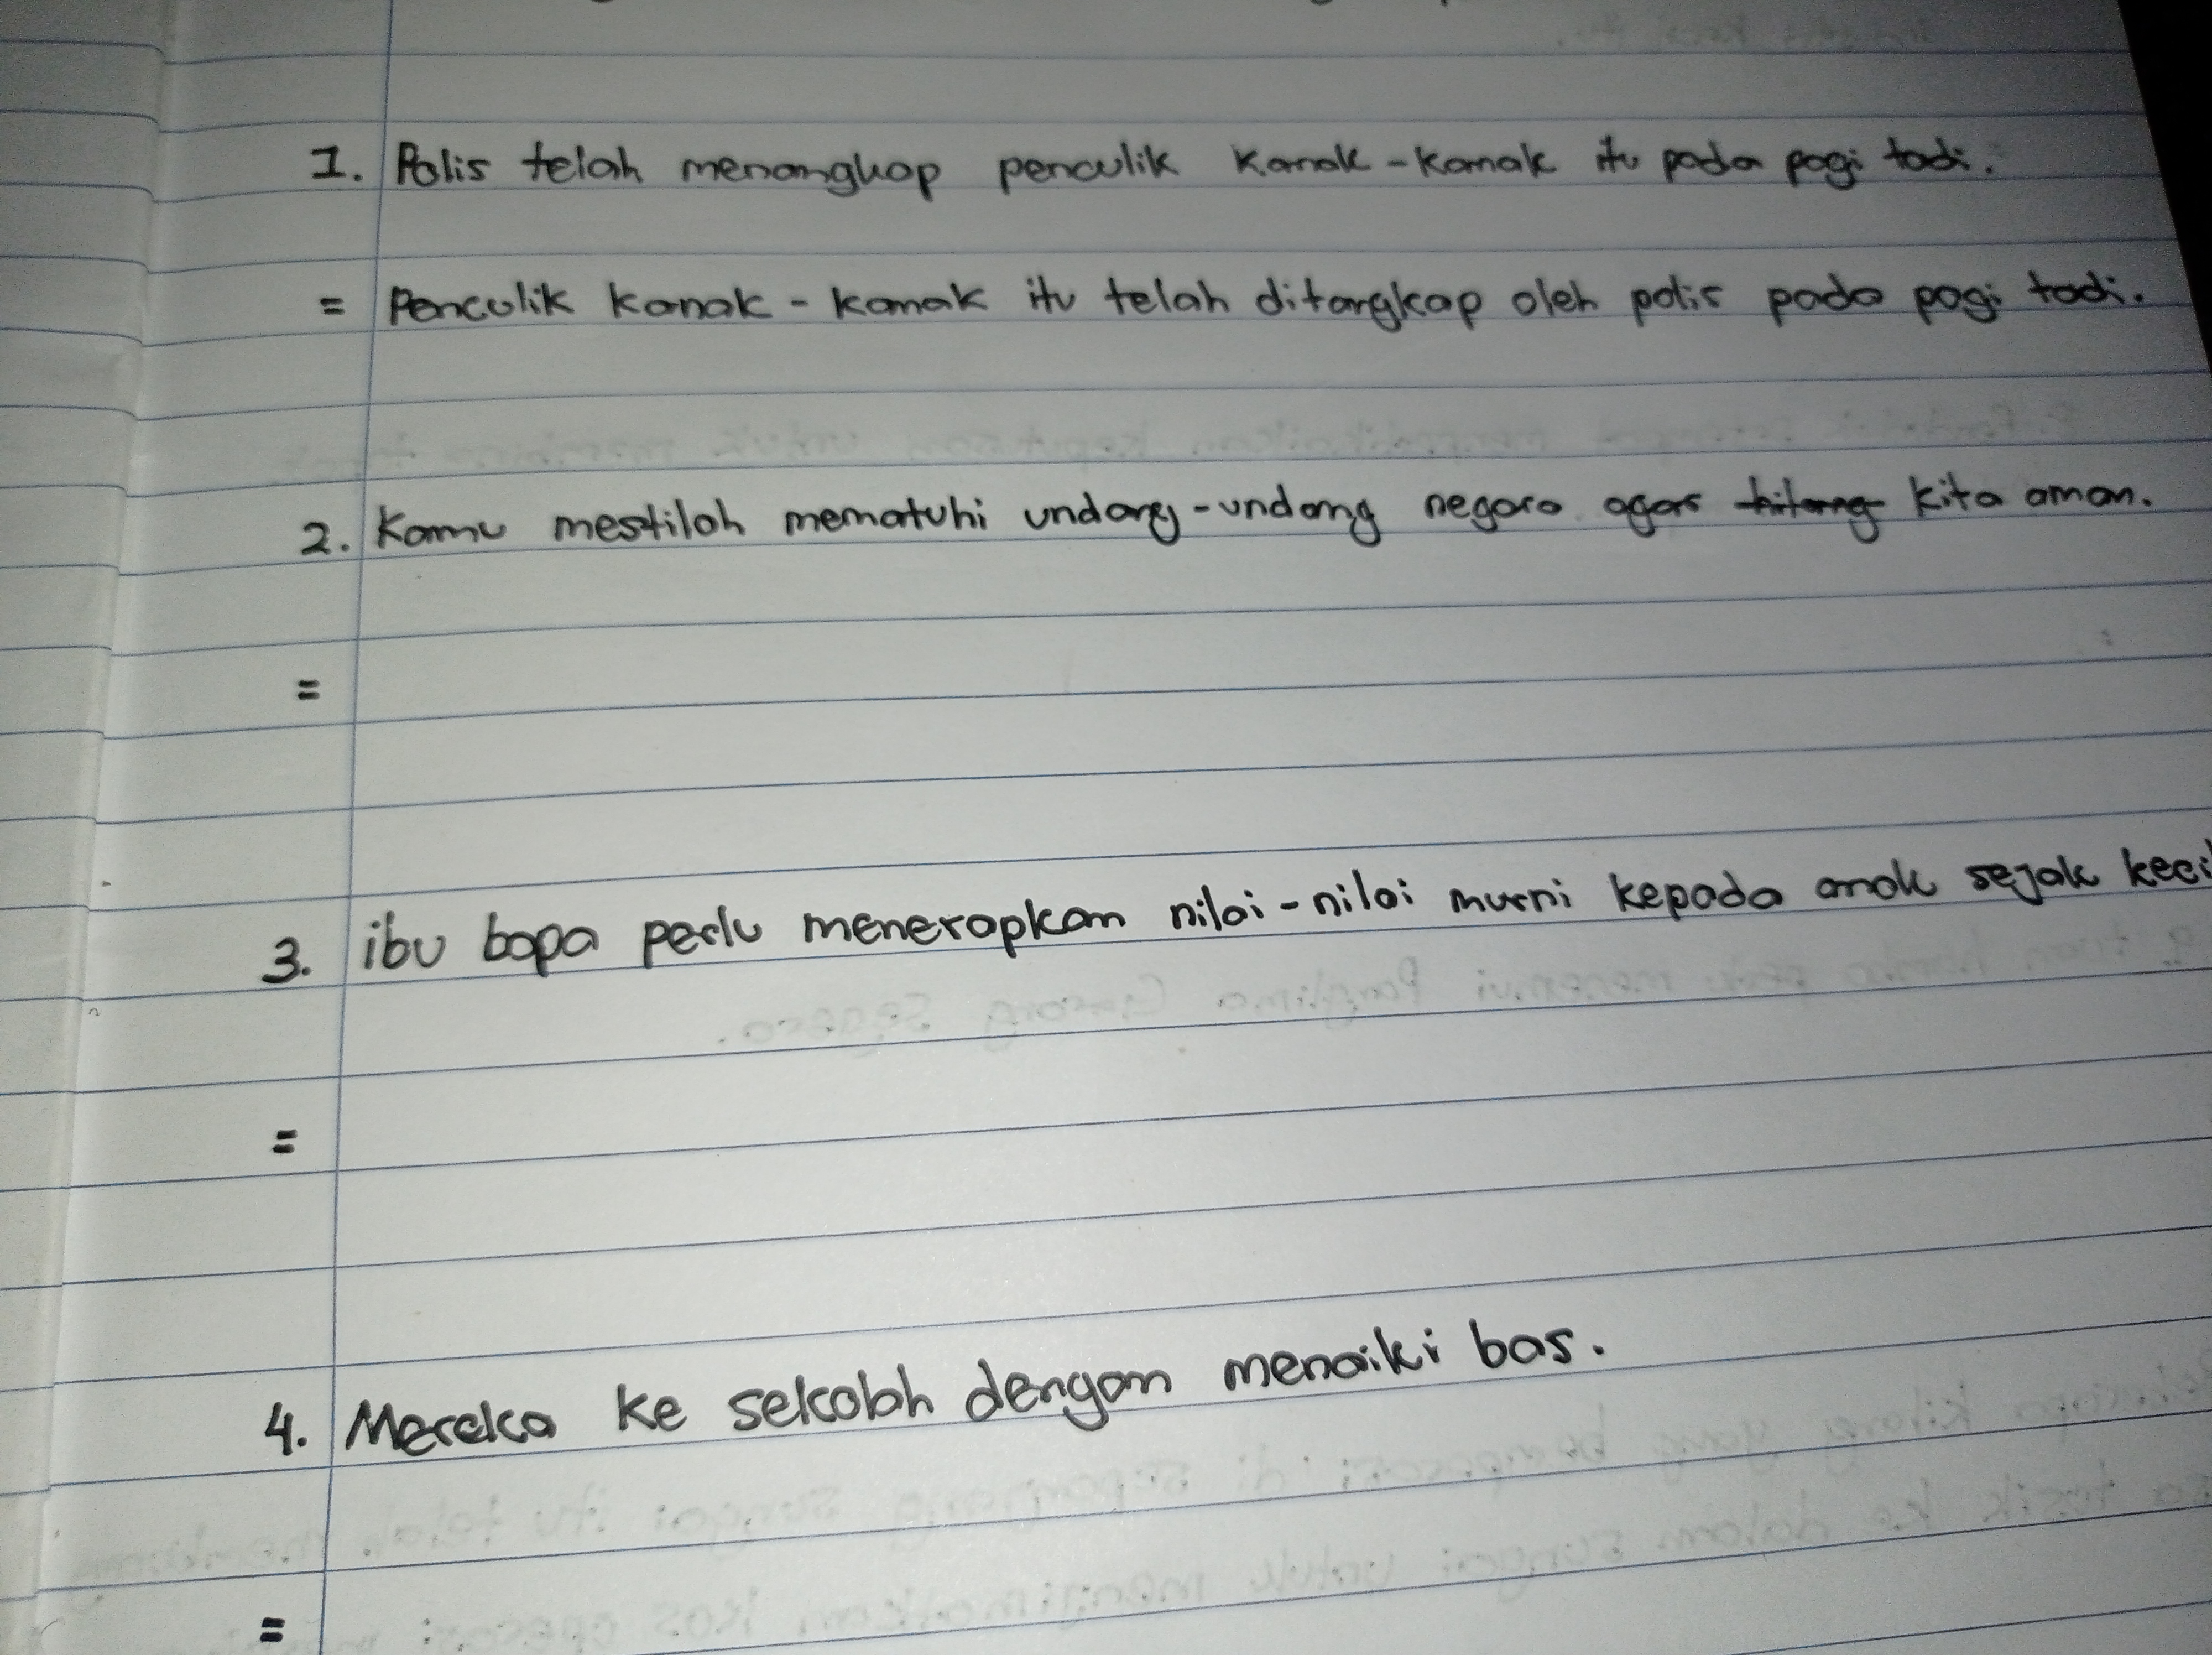 1. Polis telah menangkap penculik Kanak-Kanak itu pada pagi tadi.
= Penculik kanak-kanak itu telah ditangkap oleh polis pada pagi tadi.
2. Kamu mestilah mematuhi undang-undang negara agar kita aman.
=
3. ibu bapa perlu menerapkan nilai-nilai murni kepada anak sejak keci
=
4. Mereka ke sekolah dengan menaiki bas.
=